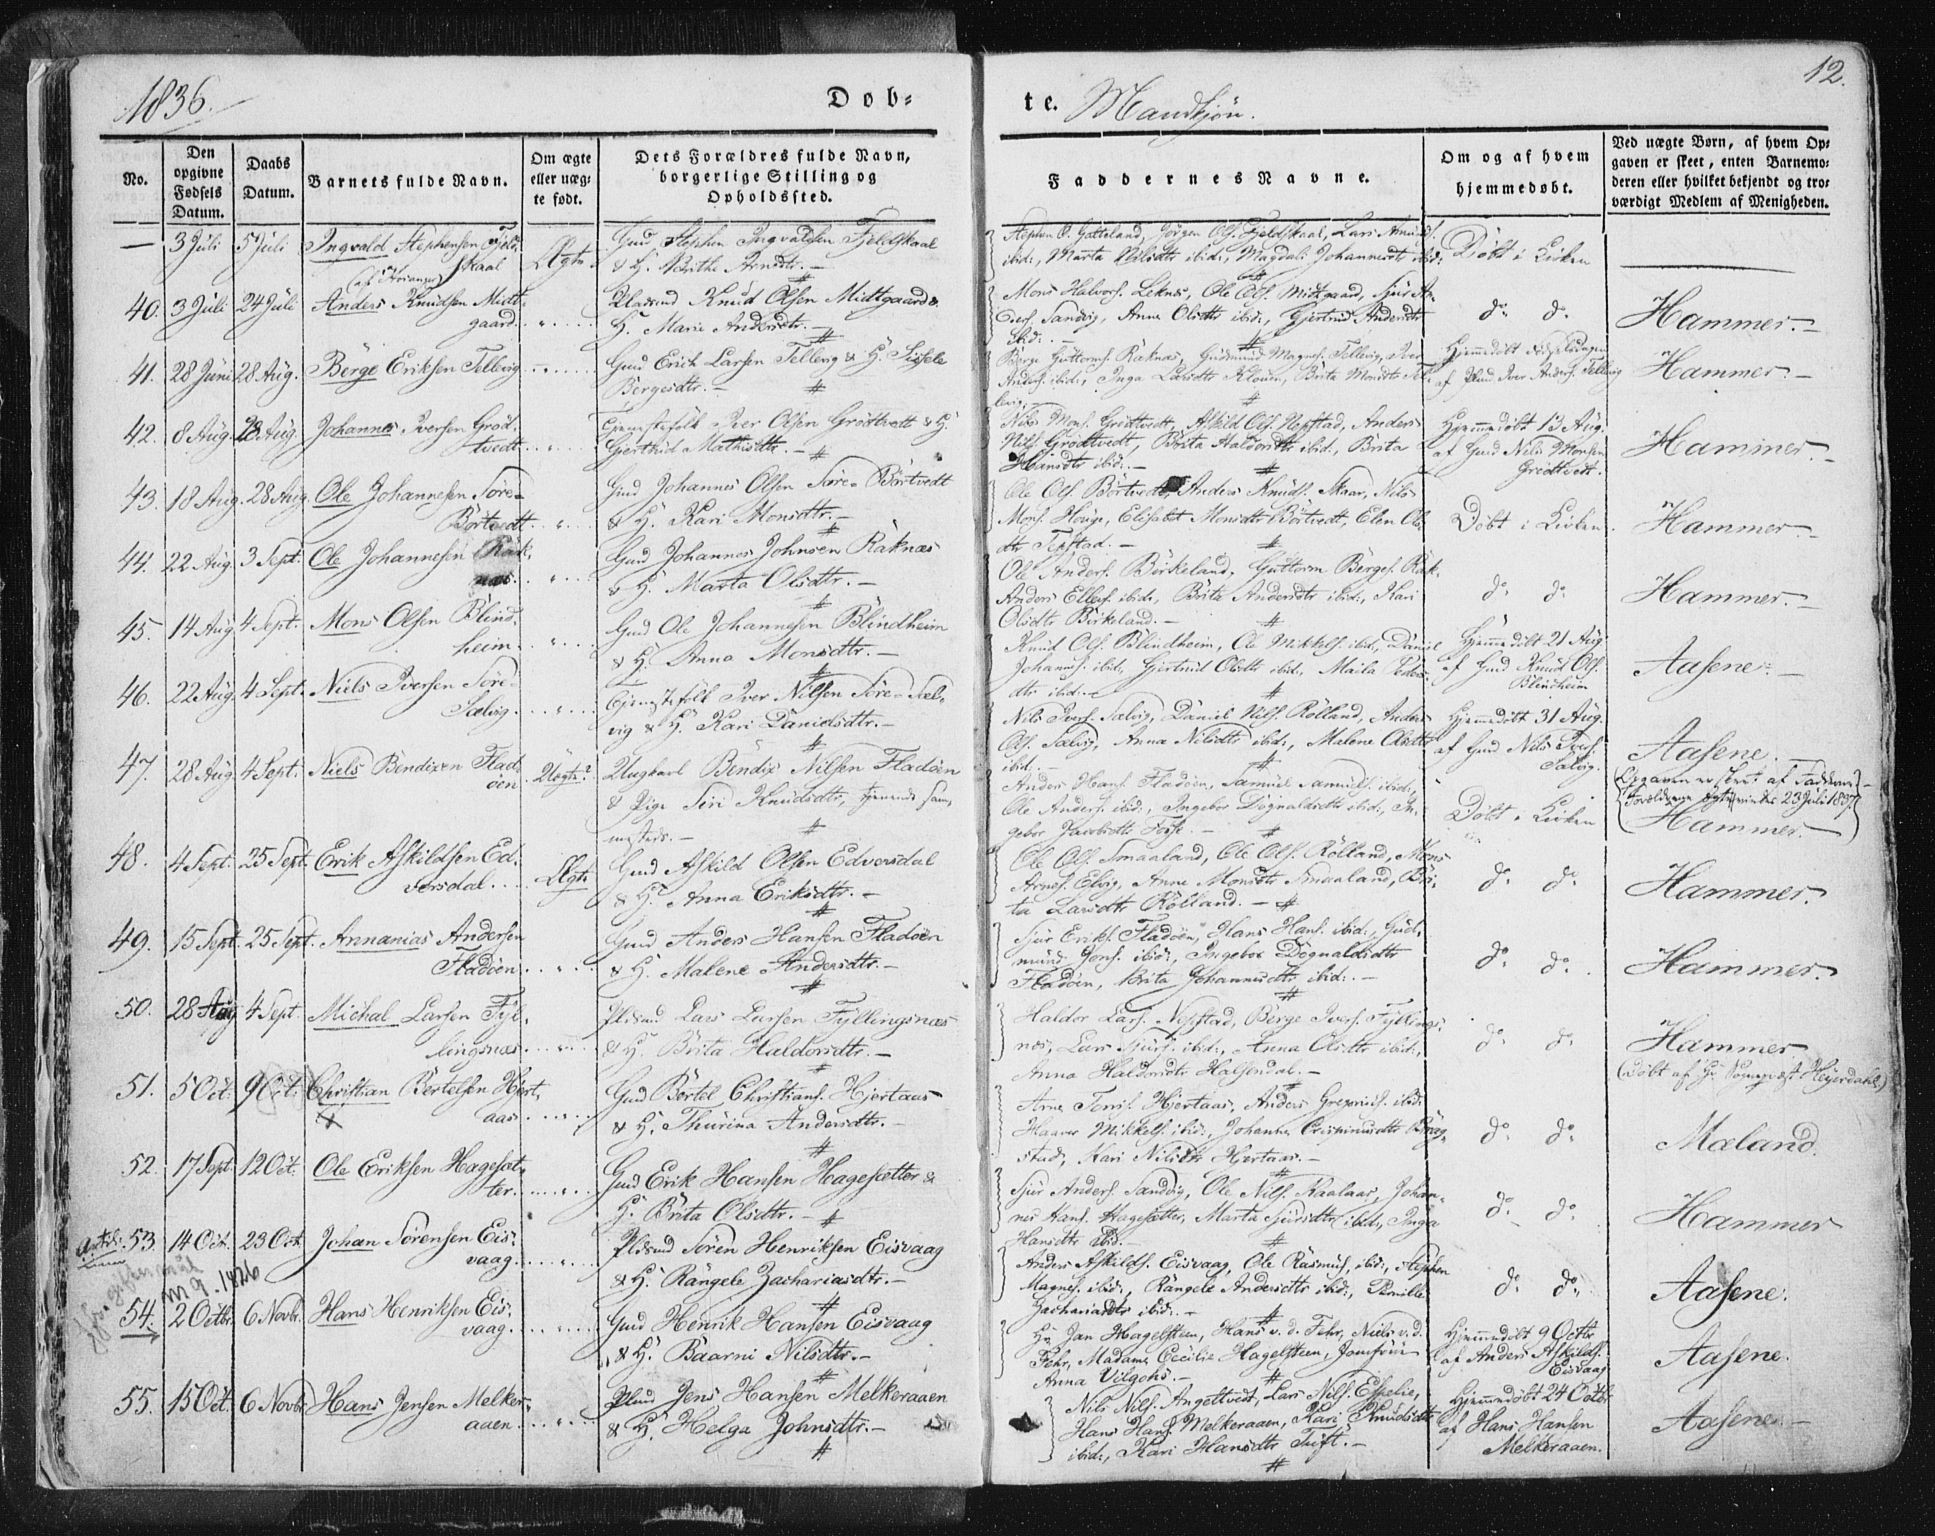 1836.
Dob-
te. Mandkjön.
12.
No.
Den opgivne Fødsels Datum.
Daabs Datum.
Barnets fulde Navn.
Om ægte eller uægte født.
Dets Forældres fulde Navn, borgerlige Stilling og Opholdssted.
Faddernes Navne.
Om og af hvem hjemmedøbt.
Ved uægte Børn, af hvem Opgaven er skeet, enten Barnemoderen eller hvilket bekjendt og troværdigt Medlem af Menigheden.
— 3 Juli 5 Juli Ingvald Stephensen Fjeldskaal Ægte
Gmd Stephen Ingvaldsen Fjeldskaal
& H. Brithe Arnesdtr. —
Döbt i Kirken
40. 3 Juli 24 Juli Anders Knudsen Midtgaard
Pladsmd Knud Olsen Midtgaard &
H. Marie Andersdtr. —
Mons Halvors. Leknes, Ole Ols. Midtgaard, Sjur An-
ders. Sandvig, Anne Olsdtr ibid:, Gjertrud Andersdtr
ibid: —
do do
Hammer. —
41. 28 Juni 28 Aug. Börge Eriksen Tellevig
Gmd Erich Larsen Tellevig & H. Sissele
Börgesdtr. —
Börge Guttorms. Raknæs, Gudmund Magnes. Tellevig, Iver
Anders. ibid:, Inga Larsdtr Klouen, Brita Monsdtr Tel-
levig. —
Hjemmedöbt Fødselsdagen
af Plmd Iver Anders. Tellevig
Hammer. —
42. 8 Aug. 28 Aug. Johannes Iversen Grödtvedt
Tjenestefolk Iver Olsen Grödtvett & H.
Gjertrud Mathisdtr. —
Nils Mons. Grödtvedt, Askild Ols. Hopstad, Anders
Nils. Grödtvedt, Brita Haldorsdtr ibid:, Brita
Hansdtr ibid. —
Hjemmedöbt 13 Aug.
af Gmd Nils Monsen
Grödtvedt.
Hammer. —
43. 18 Aug. 28 Aug. Ole Johannesen Söre-
Börtvedt
Gmd Johannes Olsen Söre-Börtvedt
& H. Kari Monsdtr. —
Ole Ols. Börtvedt, Anders Knuds. Skaar, Nils
Mons. Houge, Elisabet Monsdtr Börtvedt, Elen Ols-
dtr Tepstad. —
Döbt i Kirken.
Hammer. —
44. 22 Aug. 3 Sept. Ole Johannesen Rak-
næs
Gmd Johannes Johnsen Raknæs
& H. Marta Olsdtr. —
Ole Anders. Börkeland, Guttorm Börges. Rak.
Anders Ellefs. ibid:, Brita Andersdtr ibid:, Kari
Olsdtr Birkeland. —
do do
Hammer. —
45. 14 Aug. 4 Sept. Mons Olsen Blind-
heim
Gmd Ole Johannesen Blindheim
& H. Anna Monsdtr. —
Knud Ols. Blindheim, Ole Mikkels. ibid:, Daniel
Johanns. ibid:, Gjertrud Olsdtr ibid:, Maila Peders-
dtr ibid. —
Hjemmedöbt 21 Aug.
af Gmd Knud Ols.
Blindheim
Aasene. —
46. 22 Aug. 4 Sept. Niels Iversen Söre-
Sælvig
Tjenestefolk Iver Nilsen Söre-Sæl-
vig & H. Kari Danielsdtr. —
Nils Ivers. Sælvig, Daniel Nils. Rölland, Anders
Ols. Sælvig, Anna Nilsdtr ibid:, Malene Olsdtr
ibid. —
Hjemmedöbt 31 Aug.
af Gmd Nils Ivers.
Salvig.
Aasene.
47. 28 Aug. 4 Sept. Niels Bendixen Flad-
öen Uægte
Ungkarl Bendix Nilsen Fladöen
& Pige Siri Knudsdtr, tjenende sam-
mesteds. —
Anders Hans. Fladöen, Samuel Samuels. ibid:,
Ole Anders. ibid:, Ingebor Dögnaldsdtr ibid:, In-
gebor Jacobsdtr Fosse. —
Döbt i Kirken
(Opgaven er skeet af Fadderne) —
Forældrene egteviede 23 Juli 1837
Hammer. —
48. 4 Sept. 25 Sept. Erik Askildsen Ed-
versdal Ægte
Gmd Askild Olsen Edversdal
& H. Anna Eriksdtr. —
Ole Ols. Smaaland, Ole Ols. Rölland, Mons
Arnes. Elvig, Anne Monsdtr Smaaland, Bri-
ta Larsdtr Rölland. —
do do
Hammer.
49. 15 Sept. 25 Sept. Annanias Andersen
Fladöen
Gmd Anders Hansen Fladöen
& H. Malene Andersdtr. —
Sjur Eriks. Fladöen, Hans Hans. ibid:, Gud-
mund Jons. ibid:, Ingebor Dögnaldsdtr
Fladöen, Brita Johannesdtr ibid. —
do do
Hammer.
50. 28 Aug 4 Sept. Michal Larsen Fyl-
lingsnæs
Pladsmd Lars Larsen Fyllingsnæs
& H. Brita Haldorsdtr. —
Haldor Lars. Nepstad, Börge Ivers. Fyllings-
næs, Lars Sjurs. ibid:, Anna Olsdtr ibid:,
Anna Haldorsdtr Halsendal. —
do do
Hammer
(Döbt af Hr Sogneprest Heyerdahl.)
51. 5 Oct. 9 Oct. Christian Bertelsen Hjert-
aas
Gmd Bertel Christians. Hjertaas
& H. Thurina Andersdtr. —
Arne Tords. Hjertaas, Anders Gregorius. ibid:
Haaver Mikkels. ibid:, Johanna Crispinusdtr Bög-
stad, Kari Nilsdtr Hjertaas. —
do do
Mæland.
52. 17 Sept. 12 Oct. Ole Eriksen Hagesæt-
ter
Gmd Erik Hansen Hagesætter &
H. Brita Olsdtr. —
Sjur Anders. Sandvig, Ole Nils. Kaalaas, Johan-
nes Hans. Hagesætter, Marta Sjursdtr ibid:, Inga
Hansdtr ibid. —
do do
Hammer
53. 14 Oct. 23 Oct. Johan Sörensen Eis-
vaag
Pladsmd Sören Henriksen Eisvaag
& H. Rangele Zachariasdtr. —
Anders Askilds. Eisvaag, Ole Rasmus. ibid:, Stephen
Magnes. ibid:, Rangele Andersdtr ibid:, Pernille
Zachariasdtr ibid. —
do do
Aasene.
jfr. giftermål
nr 9. 1826
54. 2 Octbr. 6 Novbr. Hans Henriksen Eis-
vaag
Gmd Henrik Hansen Eisvaag
& H. Baarni Nilsdtr. —
Hr Jan Hagelsteen, Hans v. d. Fehr, Niels v. d.
Fehr, Madame Cecilie Hagelsteen, Jomfrue
Anna Vilgohs. —
Hjemmedöbt 9 Octbr
af Anders Askilds.
Eisvaag
Aasene.
55. 15 Oct. 6 Novbr Hans Jensen Melker-
aaen
Plmd Jens Hansen Melkeraaen
& H. Helga Johnsdtr. —
Nils Nils. Angeltvedt, Lars Nils. Espelie,
Hans Hans. Melkeraaen, Kari Knudsdtr
ibid:, Kari Hansdtr Tuft. —
Hjemmedöbt 24 Octbr
af Hans Hansen
Melkeraaen.
Aasene. —